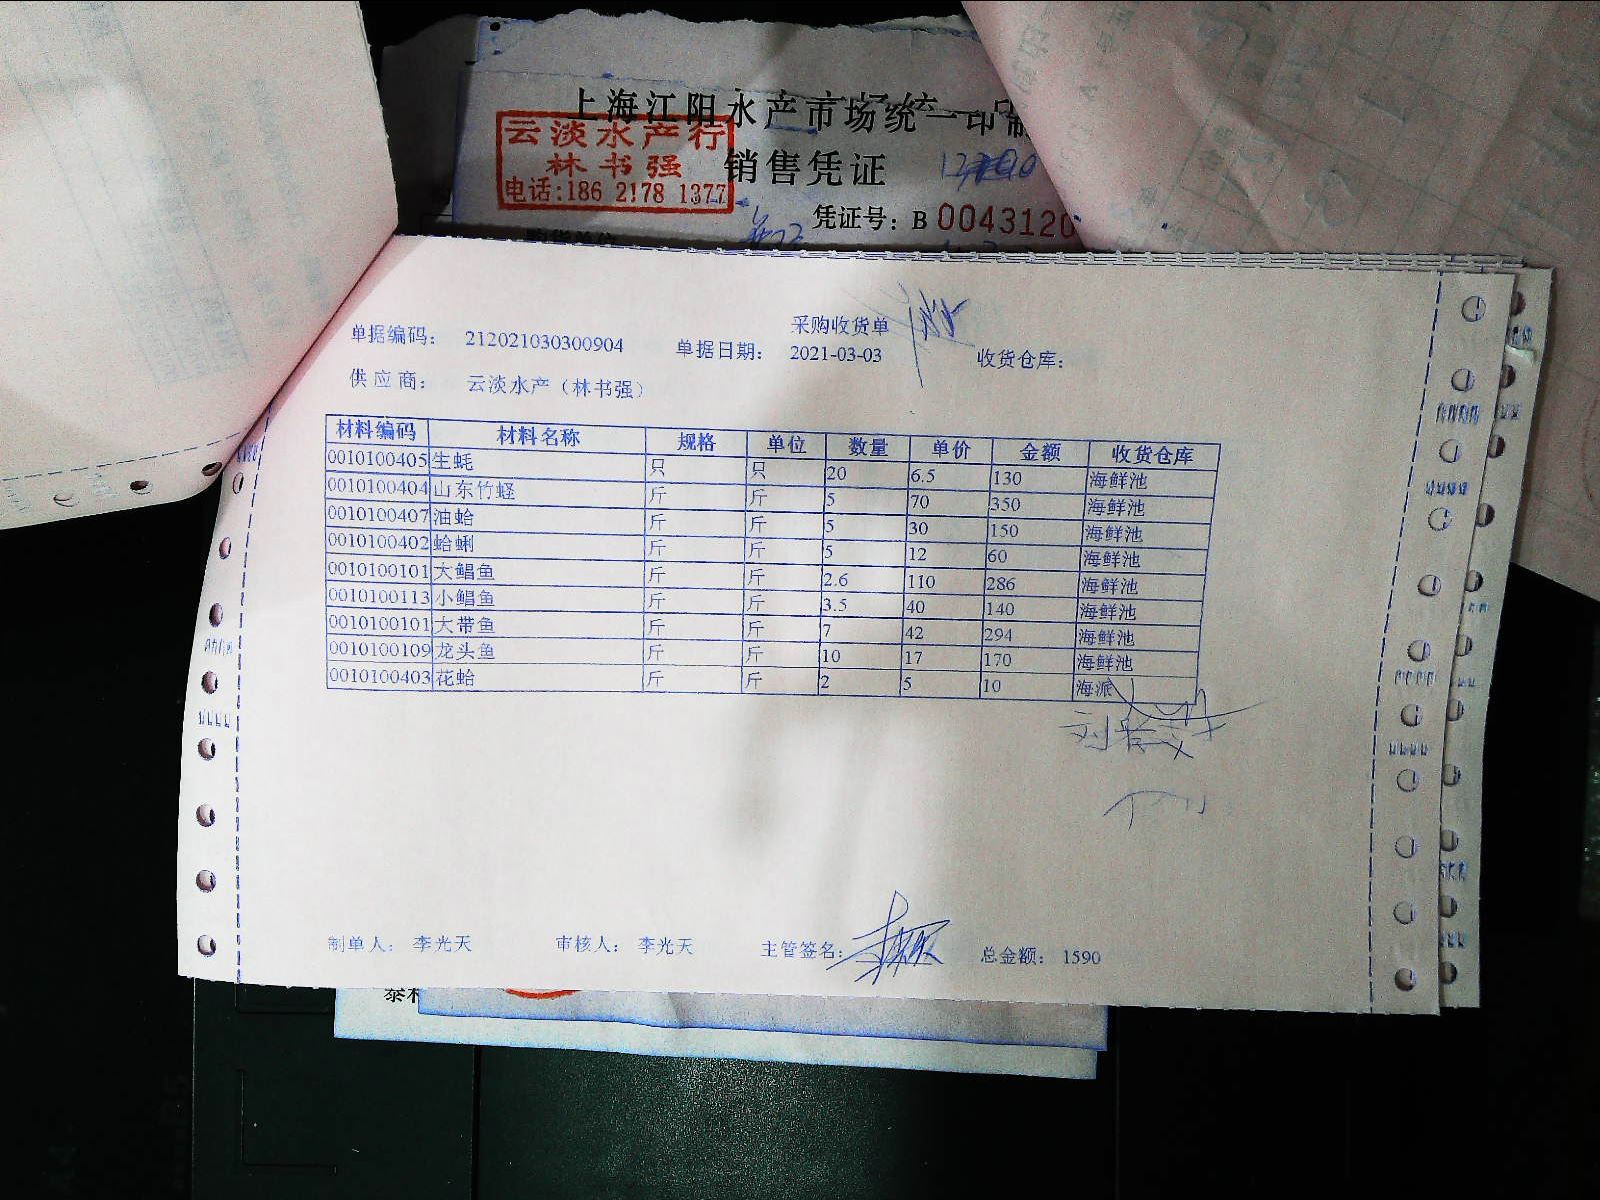 上海江阳水产市场统一印制
云淡水产行
林书强
电话:186 2178 1377
销售凭证
凭证号: B 0043120
采购收货单
单据编码: 212021030300904 单据日期: 2021-03-03 收货仓库:
供应商: 云淡水产（林书强）
材料编码 材料名称 规格 单位 数量 单价 金额 收货仓库
0010100405 生蚝 只 只 20 6.5 130 海鲜池
0010100404 山东竹蛏 斤 斤 5 70 350 海鲜池
0010100407 油蛤 斤 斤 5 30 150 海鲜池
0010100402 蛤蜊 斤 斤 5 12 60 海鲜池
0010100101 大鲳鱼 斤 斤 2.6 110 286 海鲜池
0010100113 小鲳鱼 斤 斤 3.5 40 140 海鲜池
0010100101 大带鱼 斤 斤 7 42 294 海鲜池
0010100109 龙头鱼 斤 斤 10 17 170 海鲜池
0010100403 花蛤 斤 斤 2 5 10 海派
制单人: 李光天 审核人: 李光天 主管签名: 总金额: 1590